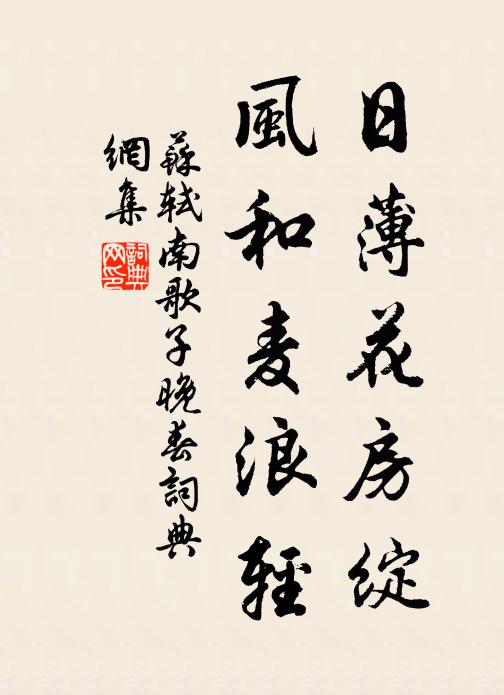 日薄花房綻
風和麦浪輕
蘇軾南歌子晚春詞典
網集
詞典
网印